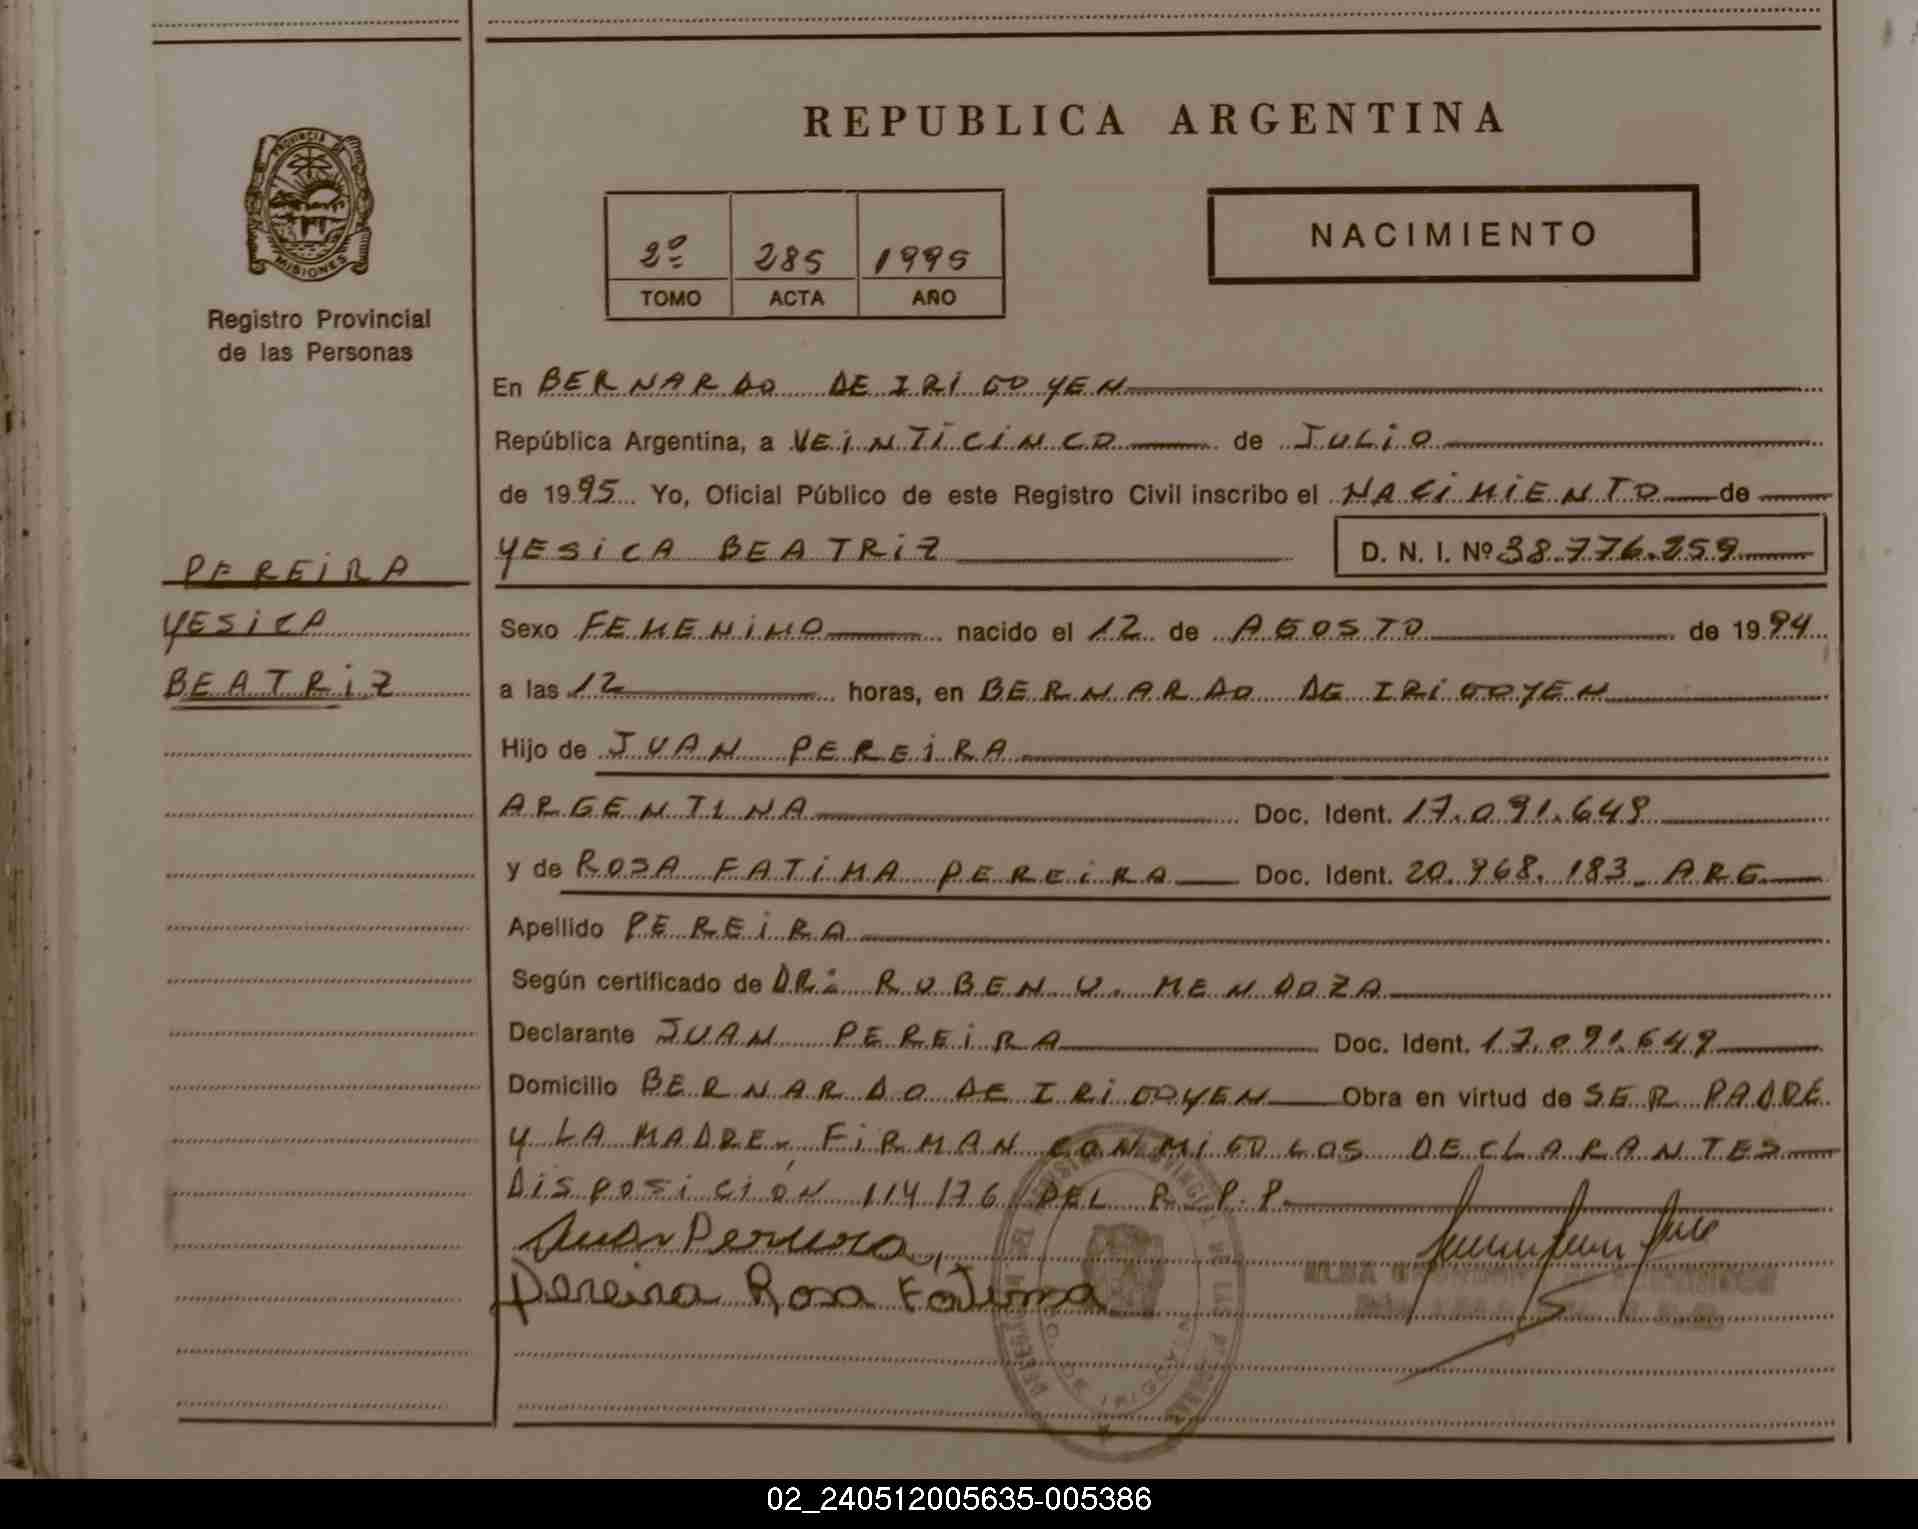 REPUBLICA ARGENTINA
PROVINCIA DE
MISIONES
Registro Provincial
de las Personas
2º 285 1995
TOMO ACTA AÑO
NACIMIENTO
En BERNARDO DE IRIGOYEN
República Argentina, a VEINTICINCO de JULIO
de 1995 Yo, Oficial Público de este Registro Civil inscribo el NACIMIENTO de
PEREIRA
YESICA
BEATRIZ
YESICA BEATRIZ D. N. I. Nº 38.776.259
Sexo FEMENINO nacido el 12 de AGOSTO de 1994
a las 12 horas, en BERNARDO DE IRIGOYEN
Hijo de JUAN PEREIRA
ARGENTINA Doc. Ident. 17.091.649
y de ROSA FATIMA PEREIRA Doc. Ident. 20.968.183. ARG
Apellido PEREIRA
Según certificado de DR: RUBEN U. MENDOZA
Declarante JUAN PEREIRA Doc. Ident. 17.091.649
Domicilio BERNARDO DE IRIGOYEN Obra en virtud de SER PADRE
Y LA MADRE. FIRMAN CONMIGO LOS DECLARANTES
DISPOSICIÓN 114/76 DEL R. P. P.
Juan Pereira
Pereira Rosa Fátima
02_240512005635-005386